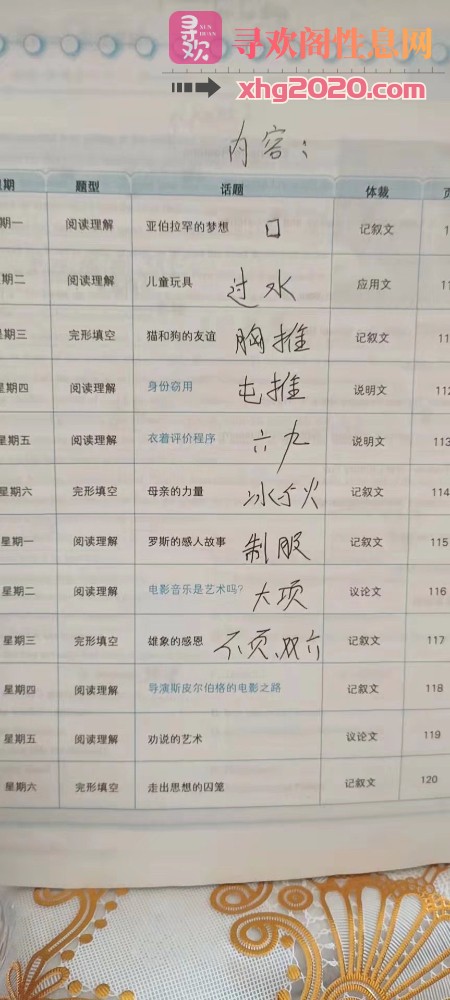 寻欢 XUN HUAN 寻欢阁性息网
xhg2020.com
内容：
期 题型 话题 体裁 页
期一 阅读理解 亚伯拉罕的梦想 口 记叙文 1
期二 阅读理解 儿童玩具 过水 应用文 11
星期三 完形填空 猫和狗的友谊 胸推 记叙文 11
星期四 阅读理解 身份窃用 屯推 说明文 112
星期五 阅读理解 衣着评价程序 六九 说明文 113
星期六 完形填空 母亲的力量 冰火 记叙文 114
星期一 阅读理解 罗斯的感人故事 制服 记叙文 115
星期二 阅读理解 电影音乐是艺术吗? 大项 议论文 116
星期三 完形填空 雄象的感恩 不项、双六 记叙文 117
星期四 阅读理解 导演斯皮尔伯格的电影之路 记叙文 118
星期五 阅读理解 劝说的艺术 议论文 119
星期六 完形填空 走出思想的囚笼 记叙文 120